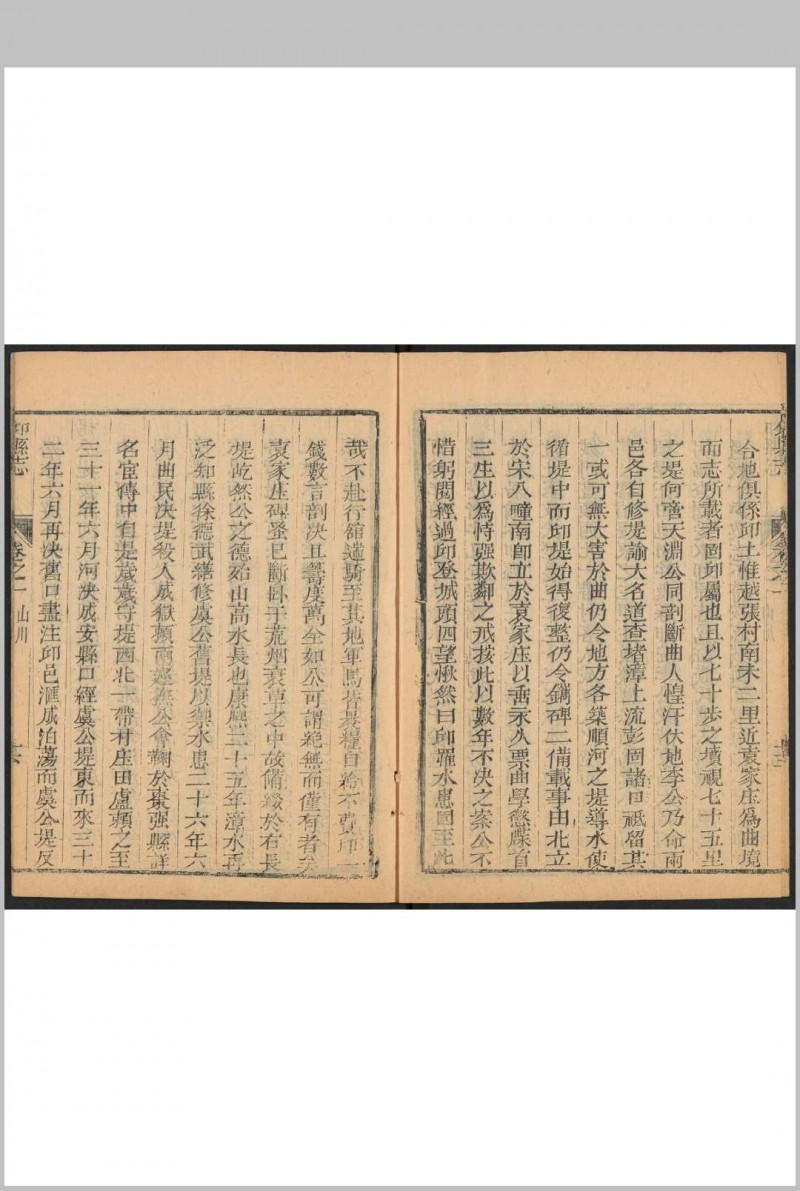 合地俱係邱土惟越張村南宋二里近袁家庄爲曲境
而志所載者固邱屬也且以七十步之墳視七十五里
之堤何啻天淵公同剖斷曲人惶汗伏地李公乃命兩
邑各自修堤諭大名道查堵漳上流彭固諸口祗留其
一或可無大害於曲仍令地方各築順河之堤導水使
循堤中而邱堤始得復整仍令鐫碑二備載事由北立
於宋八疃南卽立於袁家庄以垂永久票曲學懲縻首
三生以爲恃强欺鄰之戒按此以數年不决之案公不
惜躬閱經過邱登城頭四望愀然曰邱罹水患固至此
哉不赴行舘遄騎至其地軍馬皆裹糧自給不費邱一
錢數言剖决且籌度萬全如公可謂絶無而僅有者矣
袁家庄碑蚤已斷卧于荒烟衰草之中故備綴於右長
堤屹然公之德始山高水長也康熈二十五年漳水再
泛知縣徐德武繕修虞公舊堤以禦水患二十六年六
月曲民决堤殺人成獄頼兩
撫公會鞫於棗强縣詳
名宦傳中自堤歲歲守堤西北一帶村庄田廬頼之至
三十一年六月河决成安縣口經虞公堤東而來三十
二年六月再决舊口盡注邱邑滙成泊蕩而虞公堤反
邱縣志
卷之一
山川